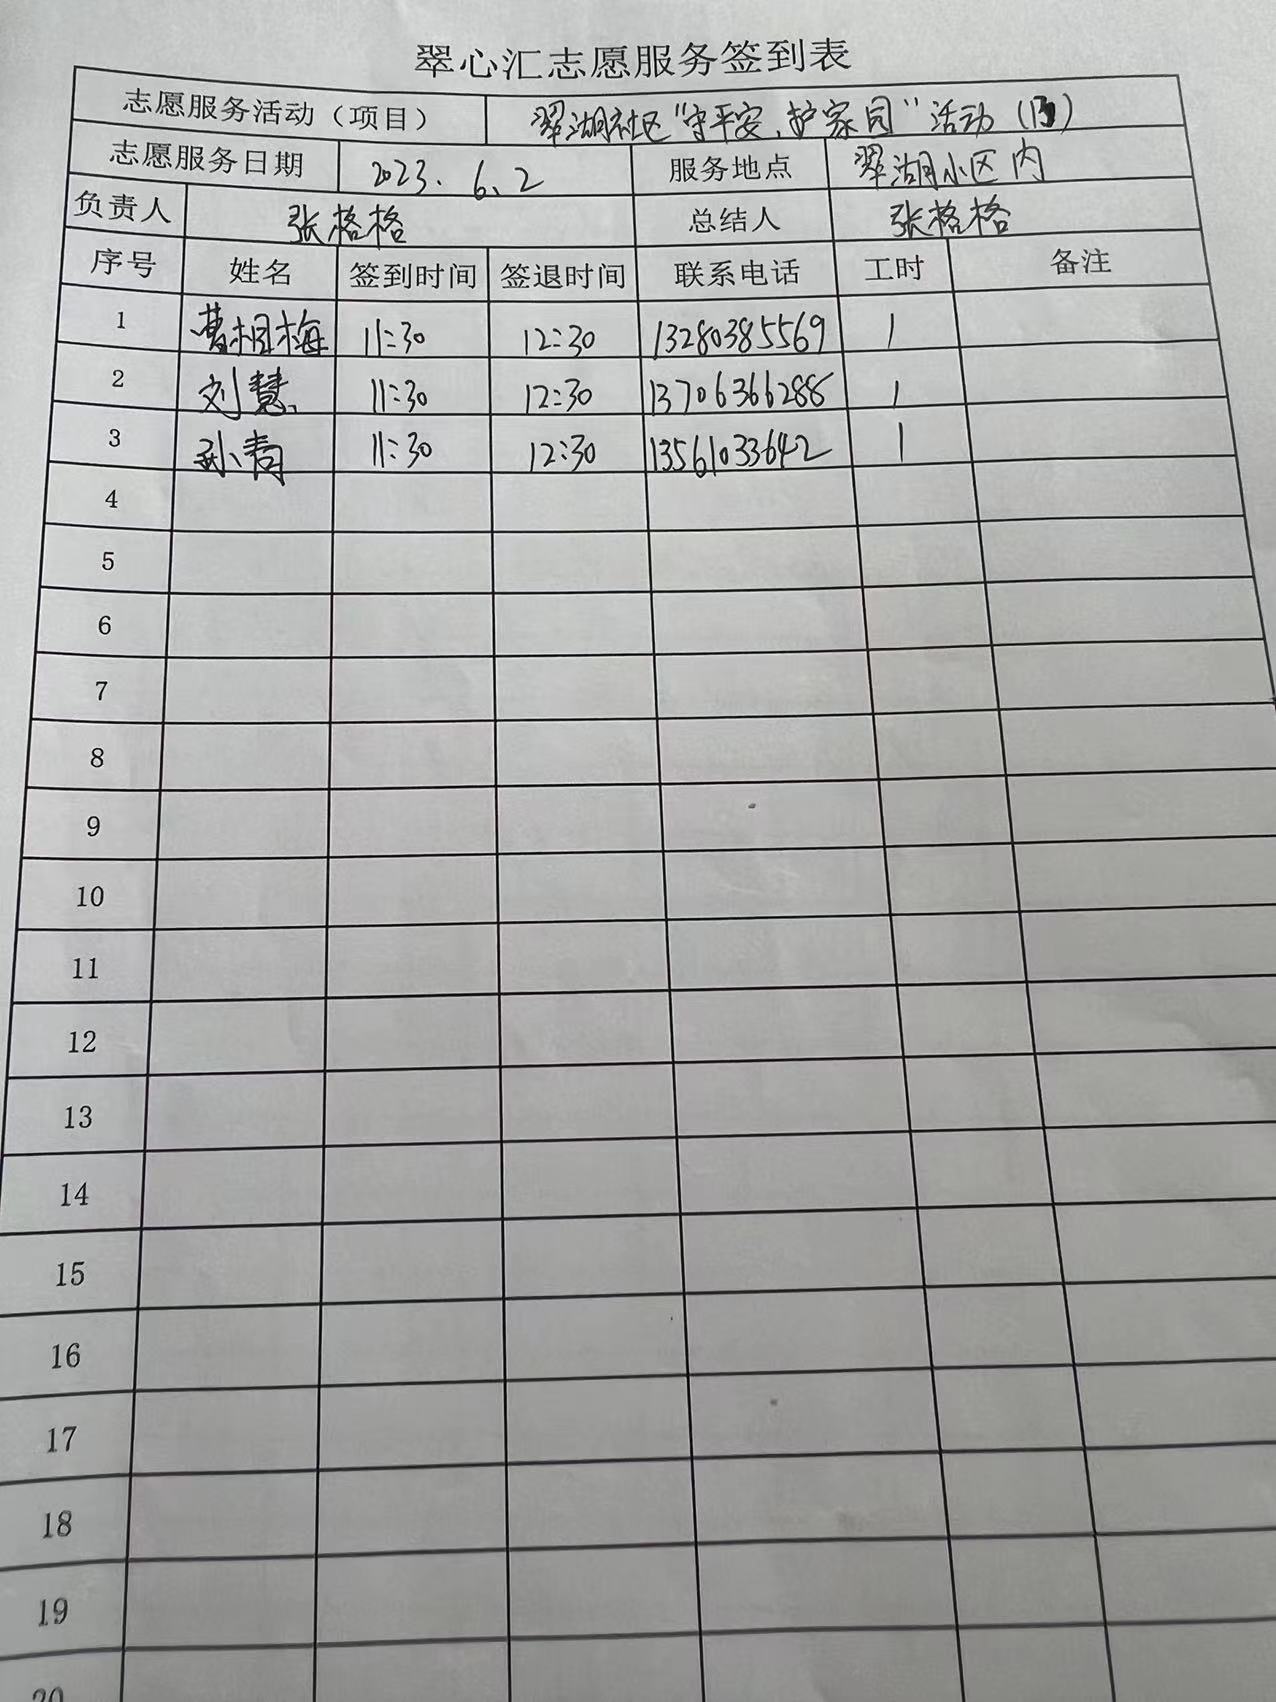 翠心汇志愿服务签到表
志愿服务活动（项目） 翠湖社区“守平安、护家园”活动（13）
志愿服务日期 2023.6.2 服务地点 翠湖小区内
负责人 张格格 总结人 张格格
序号 姓名 签到时间 签退时间 联系电话 工时 备注
1 曹相梅 11:30 12:30 13280385569 1
2 刘慧 11:30 12:30 13706366288 1
3 孙青 11:30 12:30 13561033642 1
4
5
6
7
8
9
10
11
12
13
14
15
16
17
18
19
20